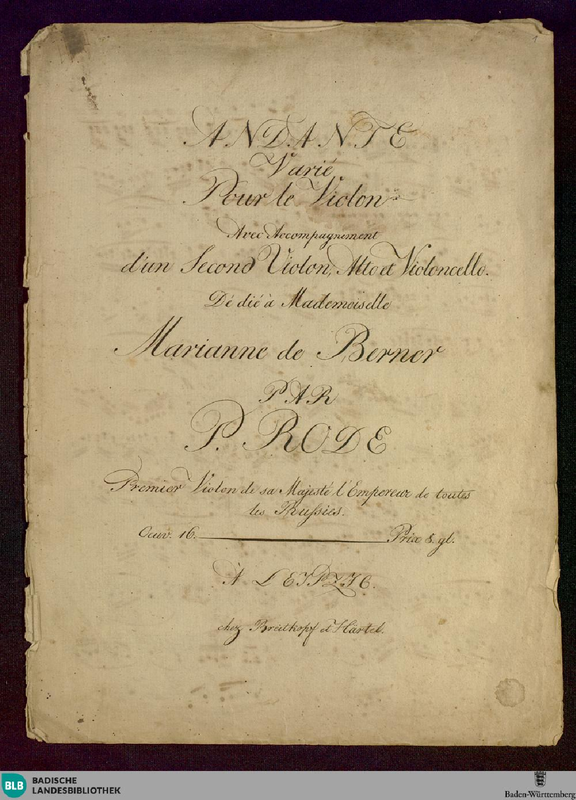 ANDANTE
Varié
Pour le Violon
Avec Accompagnement
d'un Second Violon, Alto et Violoncelle.
Dé dié à Mademoiselle
Marianne de Berner
PAR
P. RODE
Premier Violon de sa Majesté l'Empereur de toutes
les Russies.
Oeuv. 16. Prix
A LEIPZIG.
chez Breitkopf et Härtel.
BLB BADISCHE
LANDESBIBLIOTHEK
Baden-Württemberg